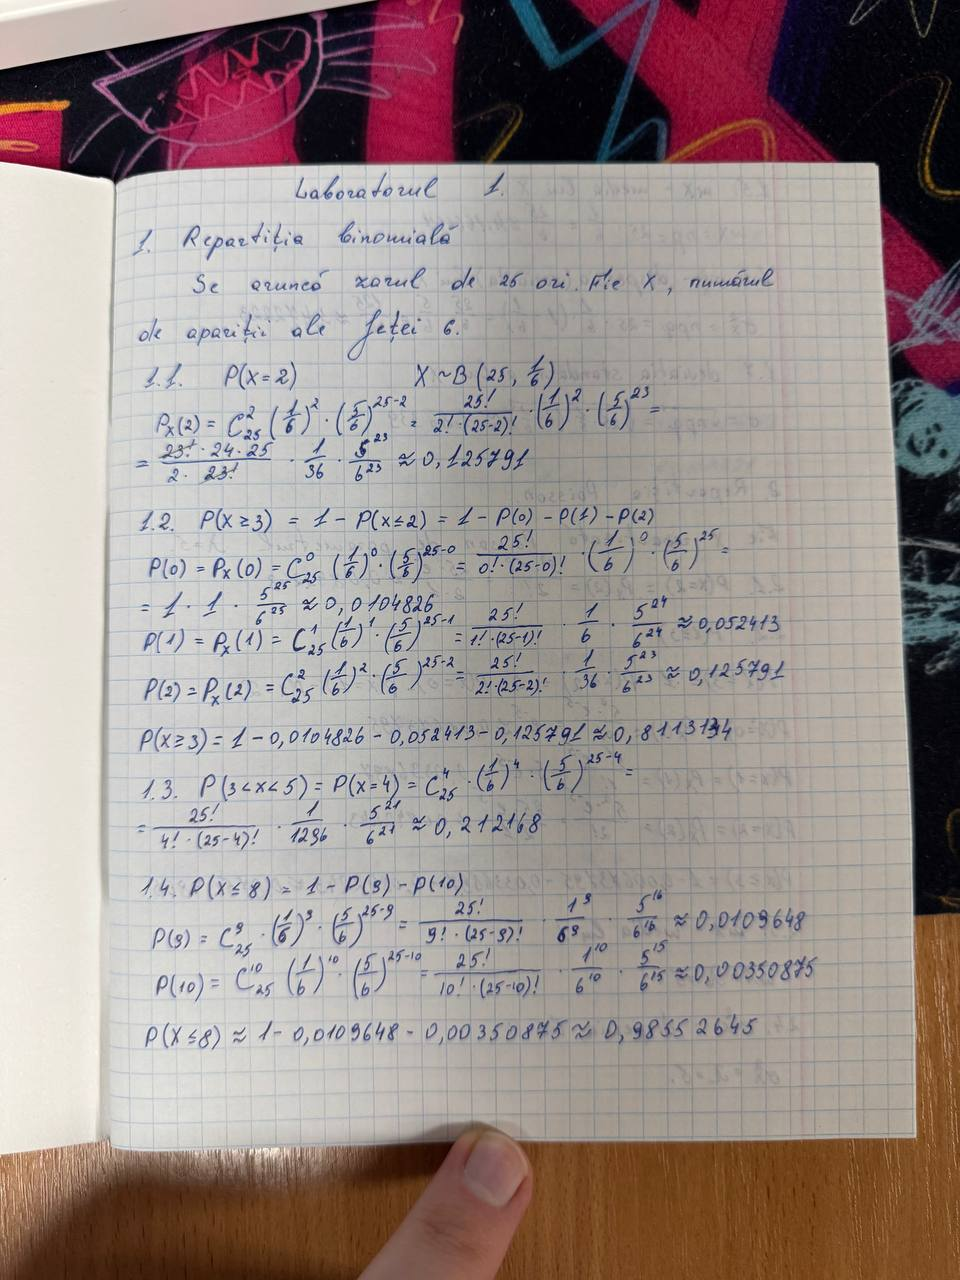 Laboratorul 1.
1. Repartiția binomială
Se aruncă zarul de 25 ori. Fie X, numărul
de apariții ale feței 6.
1.1. P(X=2) X~B(25, 1/6)
P_X(2) = C_25^2 (1/6)^2 · (5/6)^(25-2) = 25!/(2!·(25-2)!) · (1/6)^2 · (5/6)^23 =
= (23!·24·25)/(2·23!) · 1/36 · 5^23/6^23 ≈ 0,125791
1.2. P(X≥3) = 1 - P(X≤2) = 1 - P(0) - P(1) - P(2)
P(0) = P_X(0) = C_25^0 (1/6)^0 · (5/6)^(25-0) = 25!/(0!·(25-0)!) · (1/6)^0 · (5/6)^25 =
= 1 · 1 · 5^25/6^25 ≈ 0,0104826
P(1) = P_X(1) = C_25^1 (1/6)^1 · (5/6)^(25-1) = 25!/(1!·(25-1)!) · 1/6 · 5^24/6^24 ≈ 0,052413
P(2) = P_X(2) = C_25^2 (1/6)^2 · (5/6)^(25-2) = 25!/(2!·(25-2)!) · 1/36 · 5^23/6^23 ≈ 0,125791
P(X≥3) = 1 - 0,0104826 - 0,052413 - 0,125791 ≈
1.3. P(3<X<5) = P(X=4) = C_25^4 · (1/6)^4 · (5/6)^(25-4) =
= 25!/(4!·(25-4)!) · 1/1296 · 5^21/6^21 ≈ 0,212168
1.4. P(X≤8) = 1 - P(9) - P(10)
P(9) = C_25^9 · (1/6)^9 · (5/6)^(25-9) = 25!/(9!·(25-9)!) · 1^9/6^9 · 5^16/6^16 ≈ 0,0109648
P(10) = C_25^10 (1/6)^10 · (5/6)^(25-10) = 25!/(10!·(25-10)!) · 1^10/6^10 · 5^15/6^15 ≈ 0,00350875
P(X≤8) ≈ 1 - 0,0109648 - 0,00350875 ≈ 0,98552645